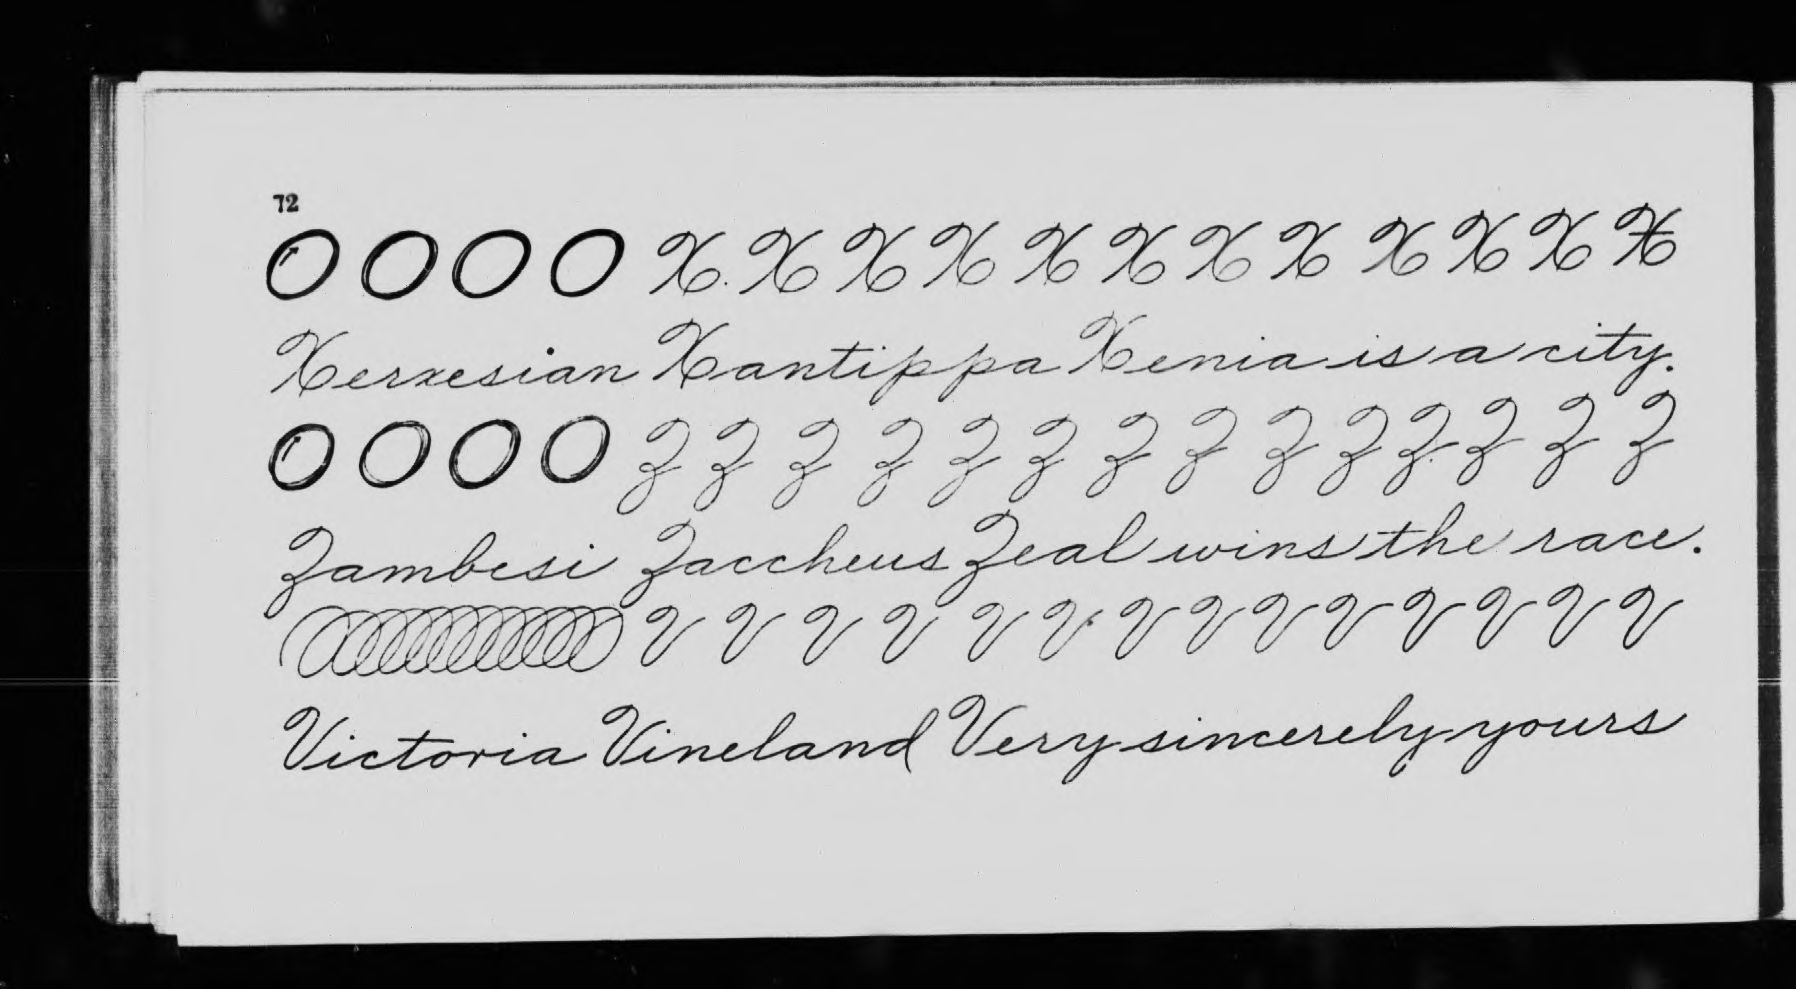 72
O O O O X X X X X X X X X X X X
Xerxesian Xantippa Xenia is a city.
O O O O Z Z Z Z Z Z Z Z Z Z Z Z Z Z
Zambesi Zaccheus Zeal wins the race.
V V V V V V V V V V V V V V
Victoria Vineland Very sincerely yours